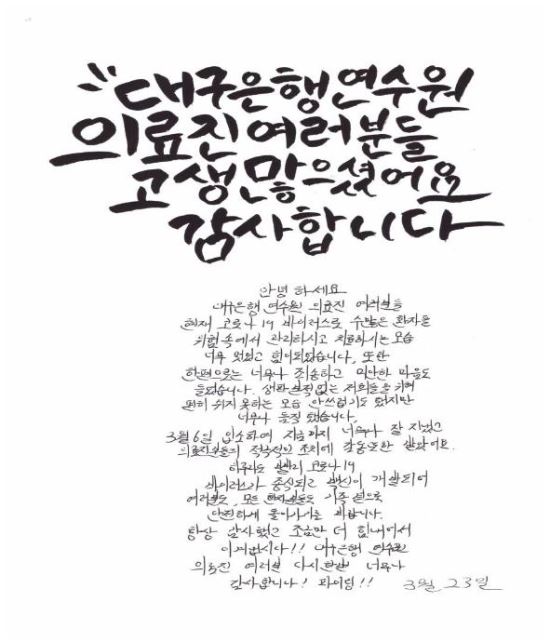 대구은행연수원
의료진여러분들
고생많으셨어요
감사합니다
안녕하세요
대구은행 연수원 의료진 여러분들
현재 코로나 19 바이러스로 수많은 환자을
위험속에서 관리하시고 치료하시는 모습
너무 멋있고 힘이되었습니다. 또한
한편으로는 너무나 죄송하고 미안한 마음도
들었습니다. 생판 없는 저희들을
편히 쉬지 못하는 모습 안쓰럽기도 했지만
너무나 듬직 했습니다.
3월6일 입소하여 지금까지 너무나 잘 지냈고
의료진분들의 적극적인 조치에 감동또한 받았어요.
하루라도 빨리 코로나19
바이러스가 종식되고 백신이 개발되어
여러분도, 모든 환자분들도 가족 품으로
안전하게 돌아가시를 바랍니다.
항상 감사했고 조금만 더 힘내어서
이겨냅시다!! 대구은행 연수원
의료진 여러분 다시한번 너무나
감사합니다! 파이팅!! 3월 23일